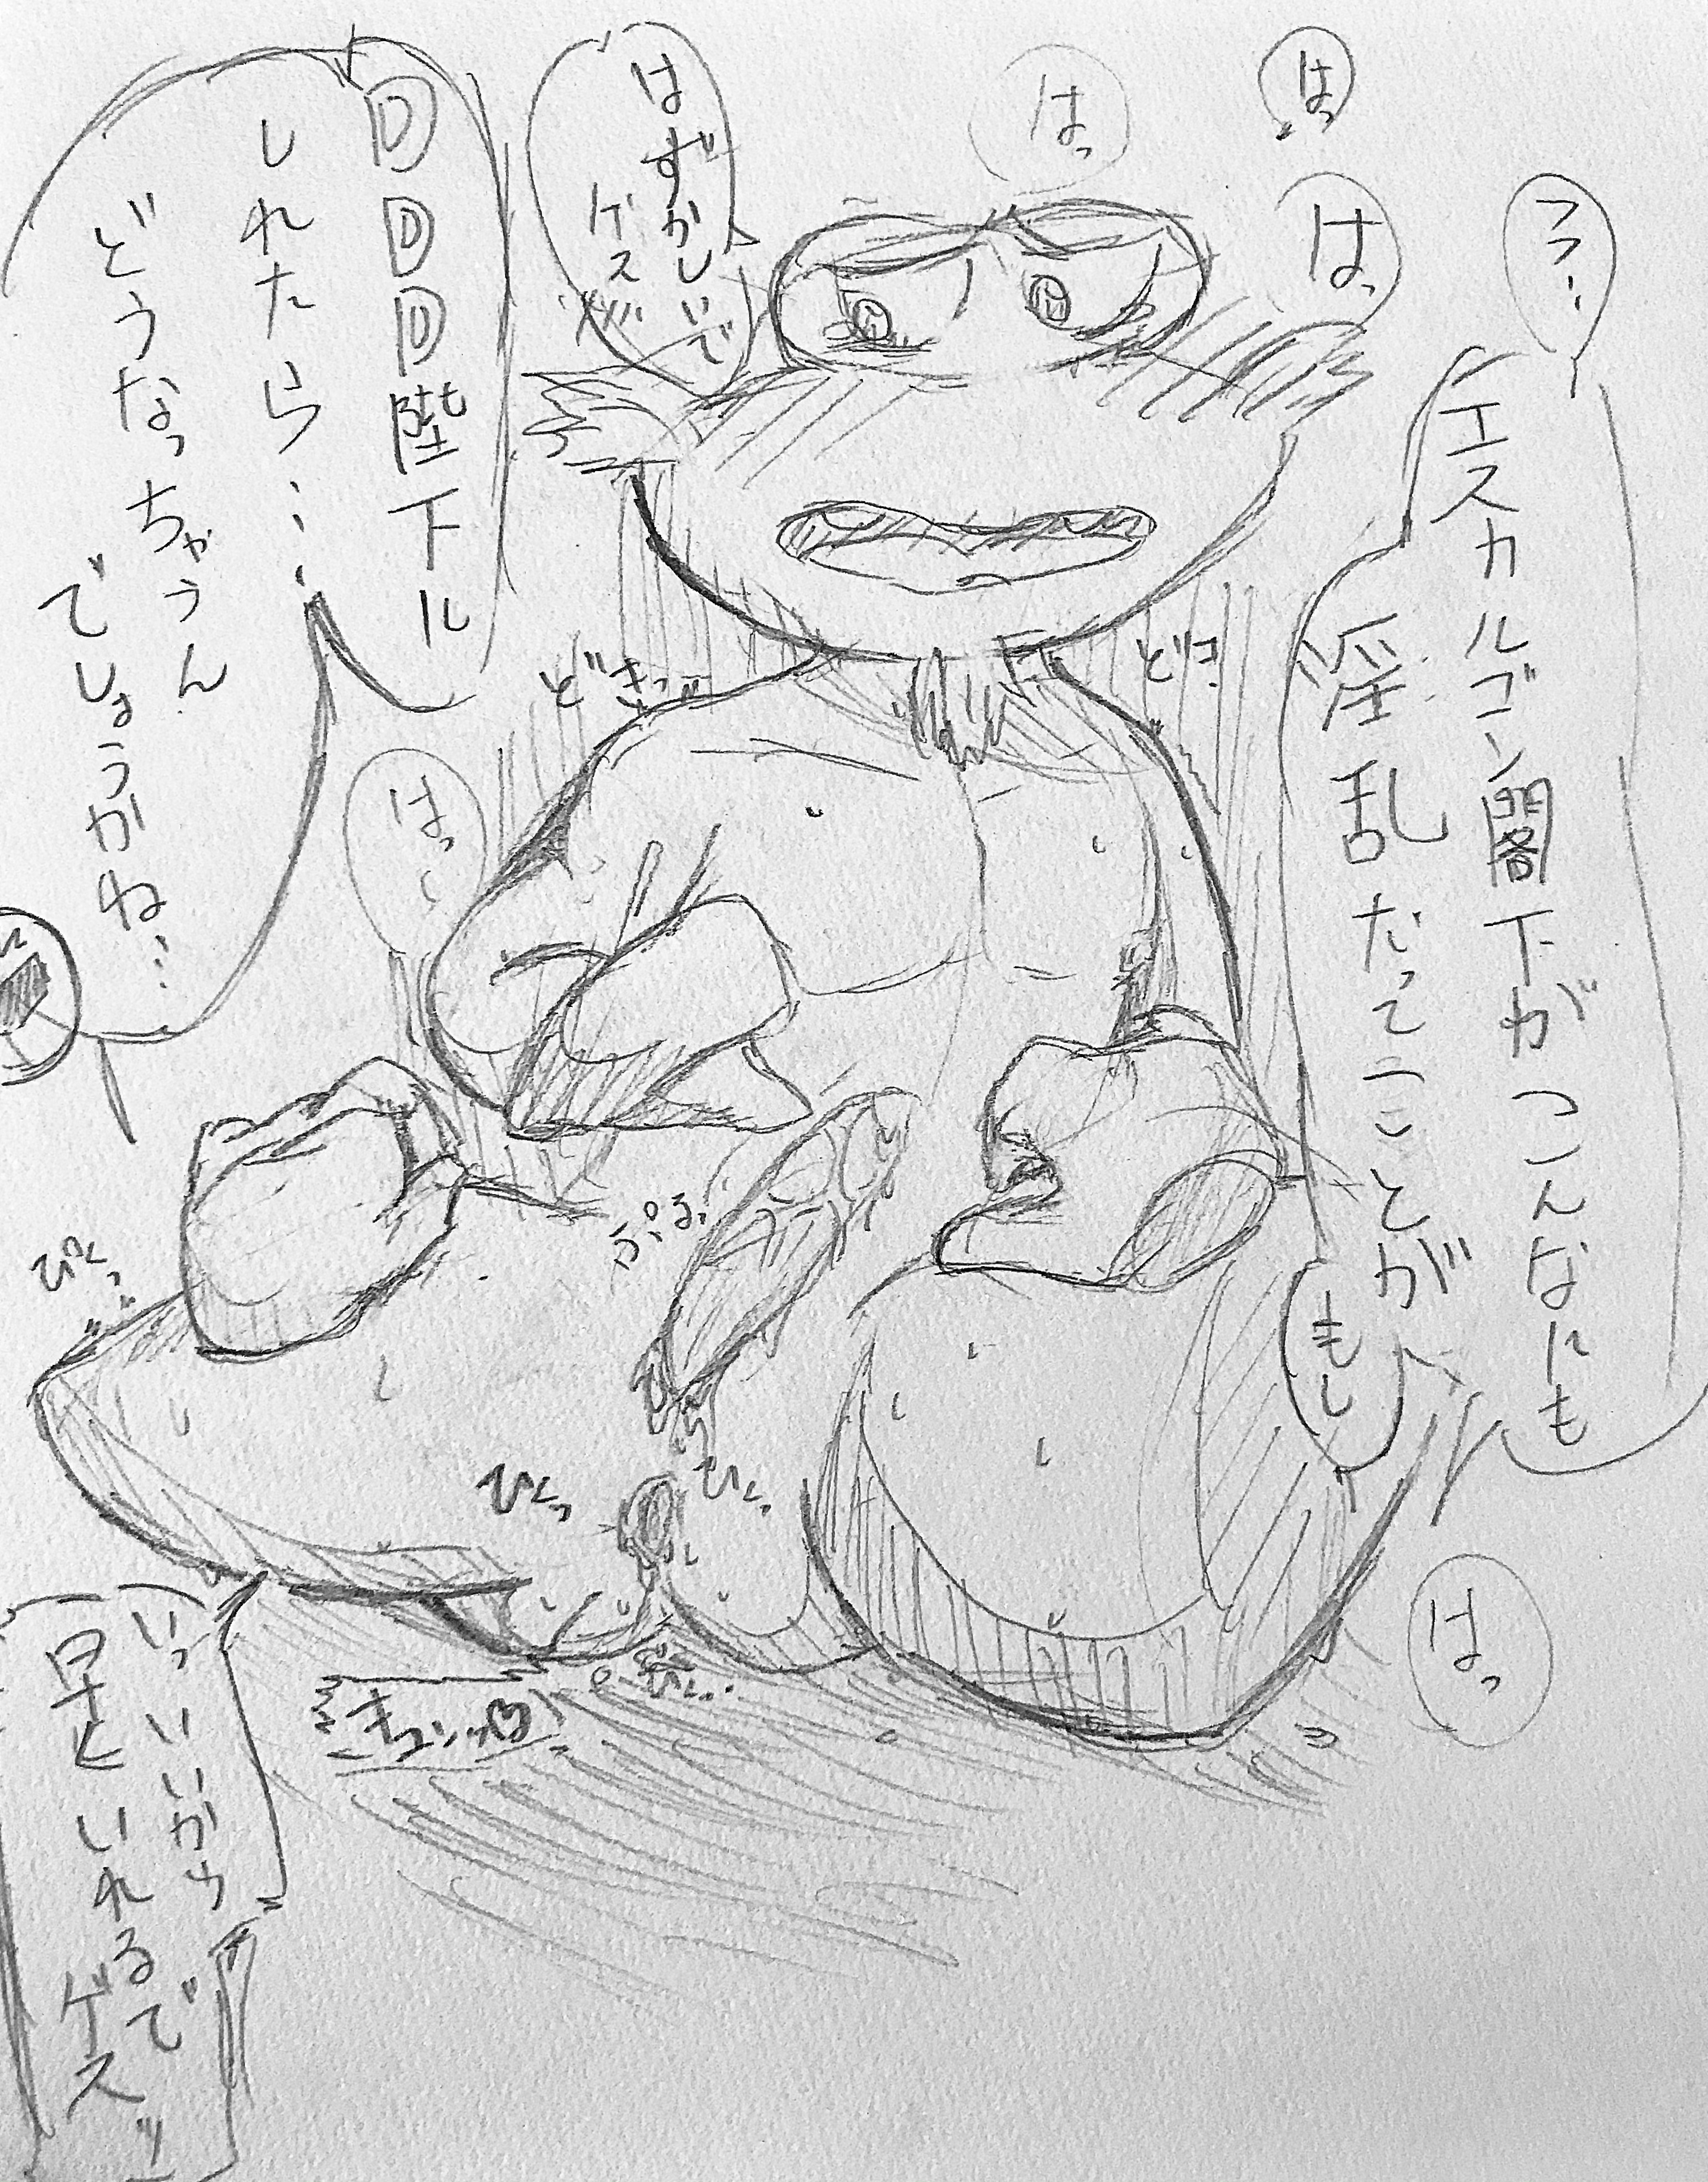 フフ…
エスカルゴン閣下がこんなにも
淫乱だってことが
もし
DDD陛下に
しれたら……
どうなっちゃうん
でしょうかね…
はずかしいで
ゲス
はっ
はっ
はっ
はっ
はっ
どきっ
ぷるっ
ひくっ
ひくっ
キュンッ♡
いっいいから
早くいれるで
ゲスッ